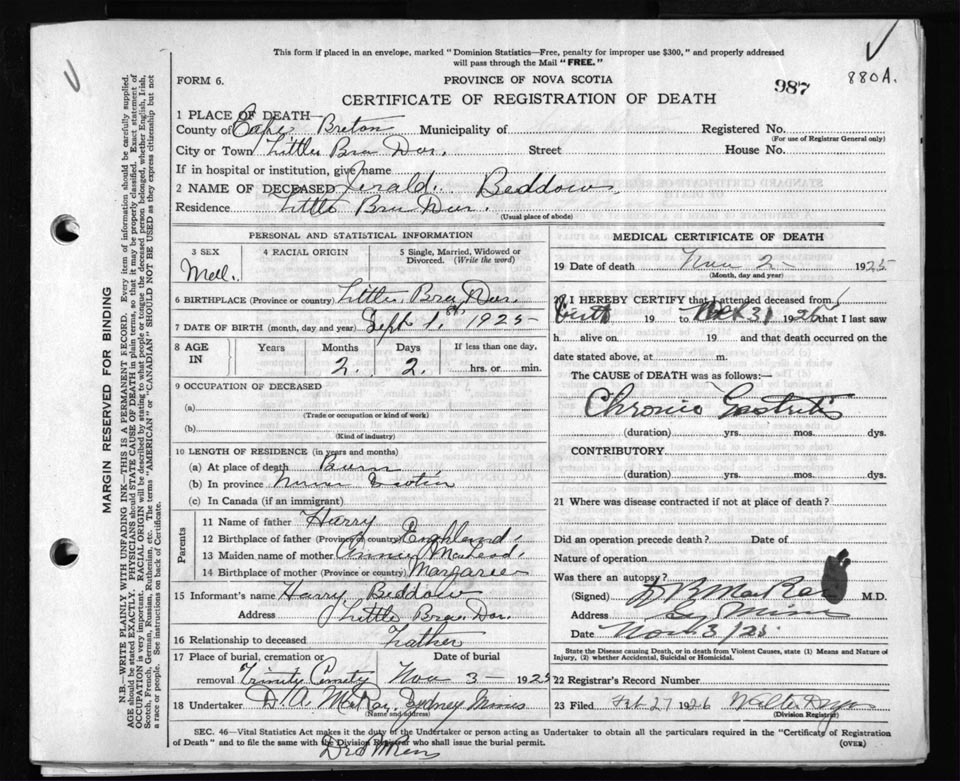 This form if placed in an envelope, marked "Dominion Statistics—Free, penalty for improper use $300," and properly addressed
will pass through the Mail "FREE."
FORM 6.
PROVINCE OF NOVA SCOTIA
987
880A.
CERTIFICATE OF REGISTRATION OF DEATH
1 PLACE OF DEATH
County of Cape Breton Municipality of Registered No.
(For use of Registrar General only)
City or Town Little Bra Dor. Street House No.
If in hospital or institution, give name
2 NAME OF DECEASED Jerald Beddow
Residence Little Bra Dor.
(Usual place of abode)
PERSONAL AND STATISTICAL INFORMATION
3 SEX
Mall.
4 RACIAL ORIGIN
5 Single, Married, Widowed or
Divorced. (Write the word)
6 BIRTHPLACE (Province or country) Little Bra Dor.
7 DATE OF BIRTH (month, day and year) Sept 1. st 1925
8 AGE IN
Years Months Days If less than one day,
2. 2. hrs. or min.
9 OCCUPATION OF DECEASED
(a)
(Trade or occupation or kind of work)
(b)
(Kind of industry)
10 LENGTH OF RESIDENCE (in years and months)
(a) At place of death
(b) In province
(c) In Canada (if an immigrant)
Parents
11 Name of father Harry
12 Birthplace of father (Province or country) England.
13 Maiden name of mother MacLeod.
14 Birthplace of mother (Province or country) Margaree
15 Informant's name Harry Beddow
Address Little Bra Dor.
16 Relationship to deceased Father
17 Place of burial, cremation or Date of burial
removal Trinity Cemety Nov 3 - 1925
18 Undertaker D. A. MacRay. Sydney Mines
(Name and address)
MEDICAL CERTIFICATE OF DEATH
19 Date of death Nov 2 - 1925
(Month, day and year)
20 I HEREBY CERTIFY that I attended deceased from
birth 19 to Oct 31 1925 that I last saw
h alive on 19 and that death occurred on the
date stated above, at m.
The CAUSE of DEATH was as follows:—
Chronic Gastritis
(duration) yrs. mos. dys.
CONTRIBUTORY.
(duration) yrs. mos. dys.
21 Where was disease contracted if not at place of death?
Did an operation precede death? Date of
Nature of operation
Was there an autopsy?
(Signed) MacRae M.D.
Address Sy Mines
Date Nov 3/25.
State the Disease causing Death, or in death from Violent Causes, state (1) Means and Nature of
Injury, (2) whether Accidental, Suicidal or Homicidal.
22 Registrar's Record Number
23 Filed Feb 27 1926 Walter
(Division Registrar)
SEC. 46—Vital Statistics Act makes it the duty of the Undertaker or person acting as Undertaker to obtain all the particulars required in the "Certificate of Registration
of Death" and to file the same with the Division Registrar who shall issue the burial permit.
(OVER)
MARGIN RESERVED FOR BINDING
N.B.—WRITE PLAINLY WITH UNFADING INK—THIS IS A PERMANENT RECORD. Every item of information should be carefully supplied.
AGE should be stated EXACTLY. PHYSICIANS should STATE CAUSE OF DEATH in plain terms, so that it may be properly classified. Exact statement of
OCCUPATION is very important. RACIAL ORIGIN will be described by stating to what people or tongue the deceased person belonged, whether English, Irish,
Scotch, French, German, Russian, Ruthenian, etc. The terms "AMERICAN" or "CANADIAN" SHOULD NOT BE USED as they express citizenship but not
a race or people. See instructions on back of Certificate.